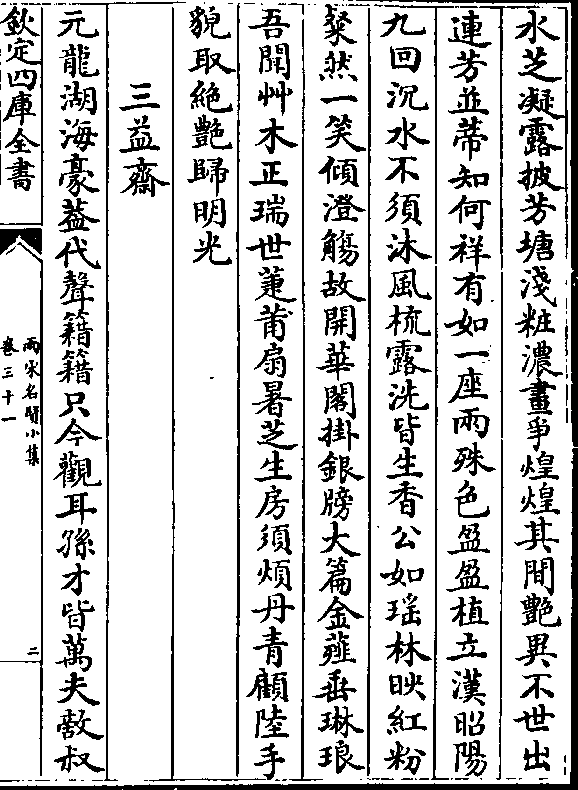 水芝凝露披芳塘淺粧濃畫爭煌煌其間艷異不世出
連芳並蒂知何祥有如一座兩殊色盈盈植立漢昭陽
九回沉水不須沐風梳露洗皆生香公如瑶林映紅粉
粲然一笑傾澄觴故開華閣掛銀牓大篇金薤垂琳琅
吾聞艸木正瑞世萐莆扇暑芝生房須煩丹青顧陸手
貌取絶艷歸明光
三益齋
元龍湖海豪葢代聲籍籍只今觀耳孫才皆萬夫敵叔
欽定四庫全書
兩宋名賢小集
卷三十一
二